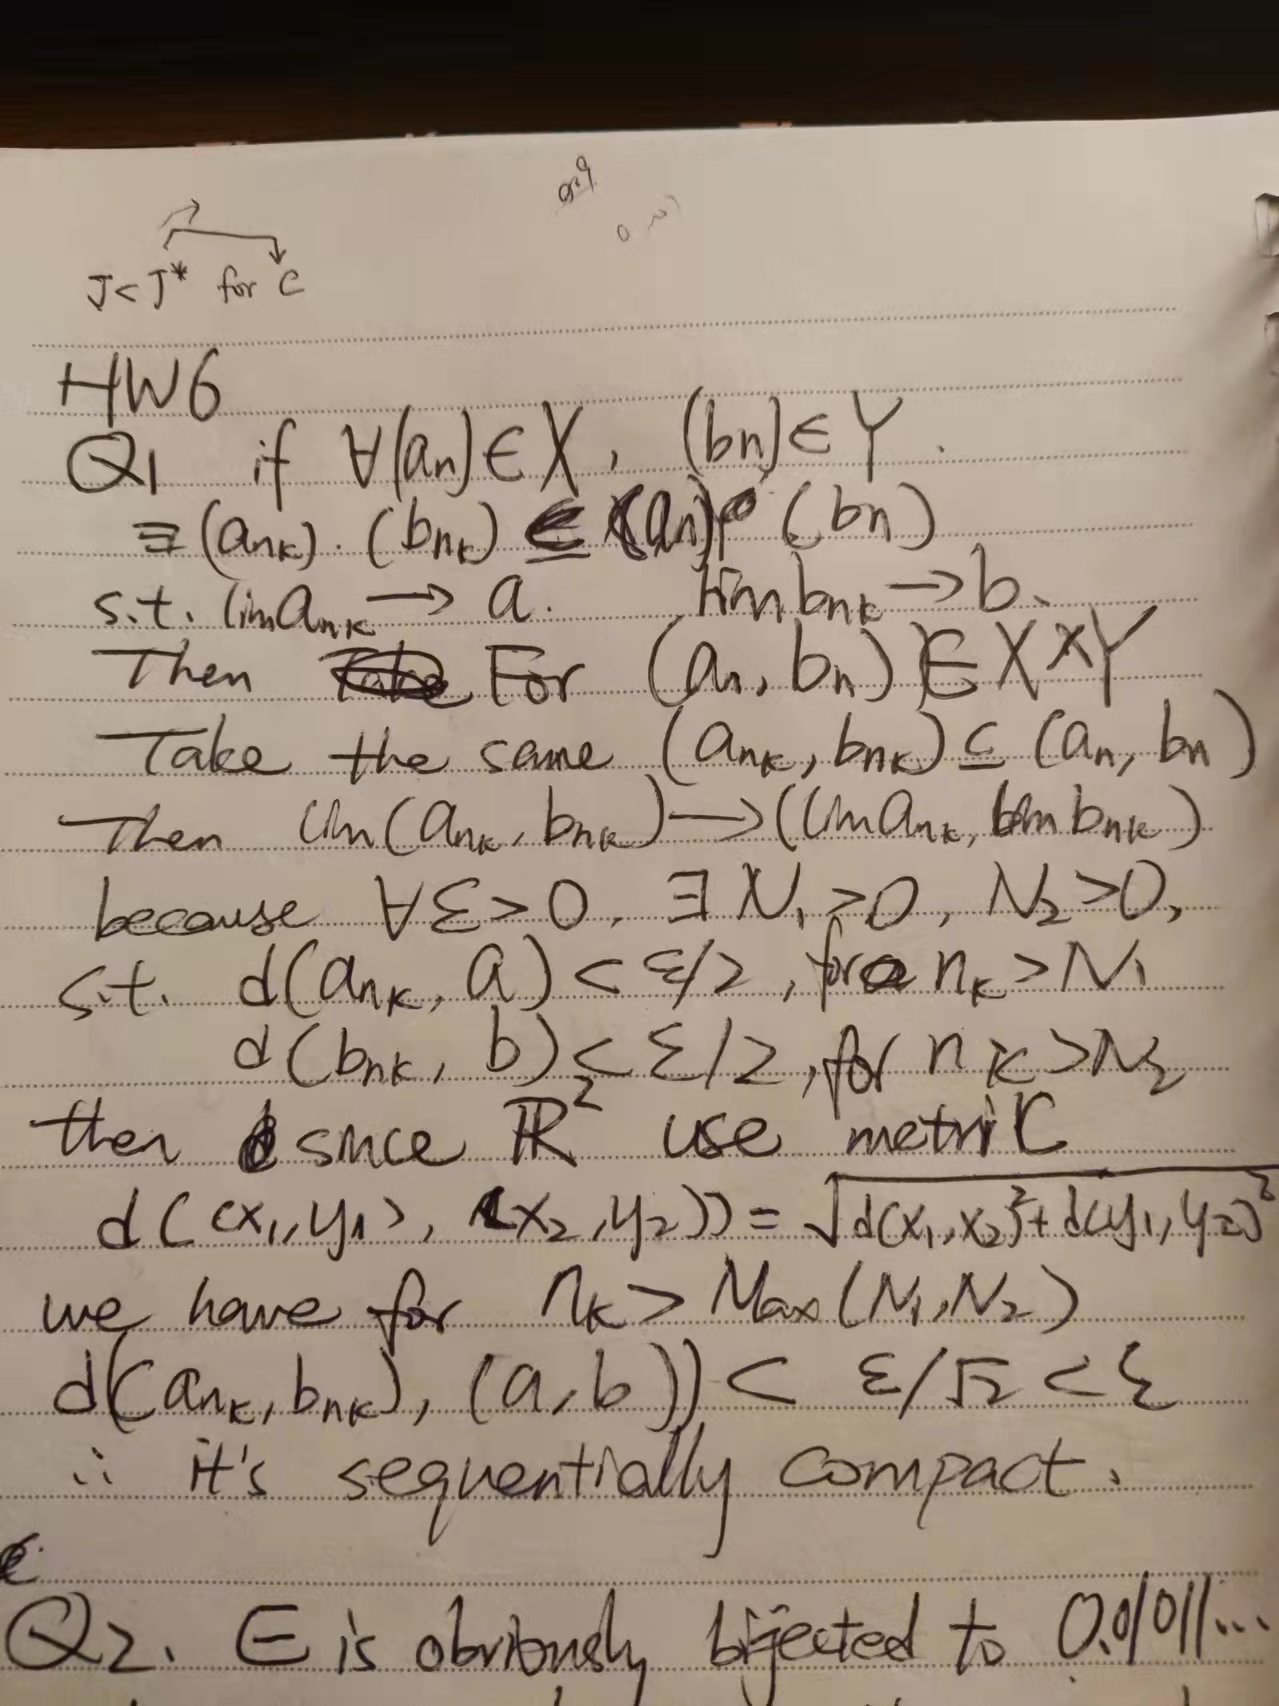 J < J* for C
HW6
Q1 if ∀(an) ∈ X, (bn) ∈ Y.
∃ (ank). (bnk) ⊆ (an) (bn)
s.t. lim ank → a. lim bnk → b.
Then For (an, bn) ∈ X × Y
Take the same (ank, bnk) ⊆ (an, bn)
Then lim(ank, bnk) → (lim ank, lim bnk)
because ∀ε > 0, ∃ N1 > 0, N2 > 0,
s.t. d(ank, a) < ε/2, for nk > N1
d(bnk, b) < ε/2, for nk > N2
then since ℝ² use metric
d((x1, y1), (x2, y2)) = √d(x1, x2)² + d(y1, y2)²
we have for nk > Max(N1, N2)
d((ank, bnk), (a, b)) < ε/√2 < ε
∴ it's sequentially compact.
Q2. E is obviously bijected to 0.01011...